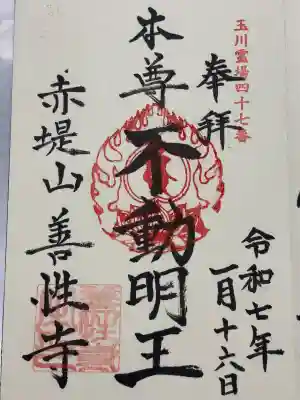 玉川霊場四十七番
奉拝
令和七年
一月十六日
本尊 不動明王
赤堤山 善性寺